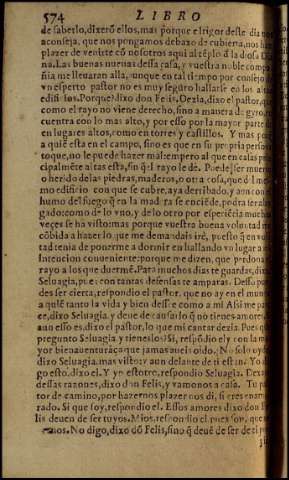 574 LIBRO
de saberlo, dixerõ ellos, mas porque el rigor deste dia nos
aconseja, que nos pongamos debaxo de cubierta, nos haz
plazer de veniros cõ nosotros aqui al tẽplo d̃ la diosa Dia
na. Las buenas nueuas dessa casa, y vuestra noble compa
ñia me lleuaran alla, aunque en tal tiempo por consejo de
vn esperto pastor no es muy seguro hallarse en los altos
edificios. Porque? dixo don Felis. Dezia, dixo el pastor, que
como el rayo no viene derecho, sino a manera de gyro,
cuentra con lo mas alto, y por esso por la mayor parte
en lugares altos, como en torres y castillos. Y mas porque
a quiẽ esta en el campo, sino es que en su propria persona
toque, no le puede hazer mal: empero al que en casas prin
cipalmẽte altas esta, sin q̃ el rayo le dè. Puede ser muerto
o herido de las piedras, maderos, o otra cosa, que d̃l mes
mo edificio con que se cubre, aya derribado, y aun con el
humo del fuego q̃ en la madera se enciẽde, podra ser aho
gado: como de lo vno, y de lo otro por esperiẽcia muchas
vezes se ha visto: mas porque vuestra buena voluntad me
cõbida a hazer lo que me demandais irè, puesto q̃ en
tad tenia de ponerme a dormir en hallando vn lugar a mi
intencion conueniente: porque me dizen, que perdona el
rayo a los que duermẽ. Para muchos dias te guardas, dixo
Seluagia, pues con tantas defensas te amparas. Desso pue
des ser cierta, respondio el pastor, que no ay en el mundo
a quiẽ tanto la vida y bien desse como a mi. Assi me pare
ce, dixo Seluagia, y deue de causarlo q̃ no tienes amores.
aun esso es, dixo el pastor, lo que mi cantar dezia. Pues que
pregunto Seluagia y tieneslos? Si, respõdio el y con la ma
yor bienauenturãça que jamas aueis oido. No solo oydo,
dixo Seluagia, mas visto: y aun delante de ti estàn. Yo
go esto, dixo el. Y yo estotro, respondio Seluagia. Dexa
dessas razones, dixo don Felis, y vamonos a casa. Tu pas
tor de camino, por hazernos plazer nos di, si eres enamo
rado. Si que soy, respondio el. Essos amores dixo don Fe
lis deuen de ser tuyos. Mios, respondio el pues son, que
enos. No digo, dixo dõ Felis, sino q̃ deuẽ de ser de ti